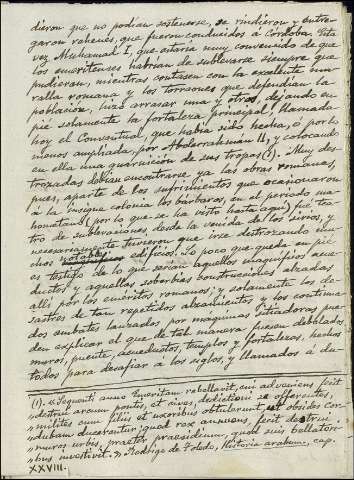 dieron que no podían sostenerse, se rindieron y entre-
garon rahenes, que fueron conducidos á Córdoba. Esta
vez Muhamad I, que estaria muy convencido de que
los emeritenses habrian de sublevarse siempre que
pudieran, mientras contasen con la excelente mu-
ralla romana y los torreones que defendian la
poblacion, hizo arrasar una y otros, dejando en
pié solamente la fortaleza principal, llamada
hoy el Conventual, que había sido hecha, ó por lo
menos ampliada, por Abderrahman II, y colocando
en ella una guarnicion de sus tropas (1). Muy des-
trozadas debian encontrarse ya las obras romanas,
pues, aparte de los sufrimientos que ocasionaron
á la insigne colonia los bárbaros, en el periodo ma-
hometano (por lo que se ha visto hasta aquí) fué tea-
tro de sublevaciones, desde la venida de los sirios, y
necesariamente tuvieron que irse destrozando mu-
chos notables edificios. Lo poco que queda en pié
es testigo de lo que serían aquellos magníficos acue-
ductos y aquellas soberbias construcciones alzadas
allí por los eméritos romanos; y solamente los de-
sastres de tan repetidos alzamientos y los continua-
dos embates lanzados por máquinas sitiadoras pue-
den explicar el que de tal manera fuesen debelados
muros, puente, acueductos, templos y fortalezas, hechos
todos para desafiar á los siglos, y llamados á du-
(1). «Sequenti anno Emeritam rebellavit, cui adveniens fecit
"destrui arcum pontis, et cives, deditioni se offerentes,
"milites cum filiis et uxoribus obtulerunt, et obsides Cor-
"dubam ducerentur; quod rex annuens, fecit destrui
"muros urbis, praeter praesidium, quod suis bellatori-
"bus investivit.» Rodrigo de Toledo, Historia arabum, cap.
XXVIII.